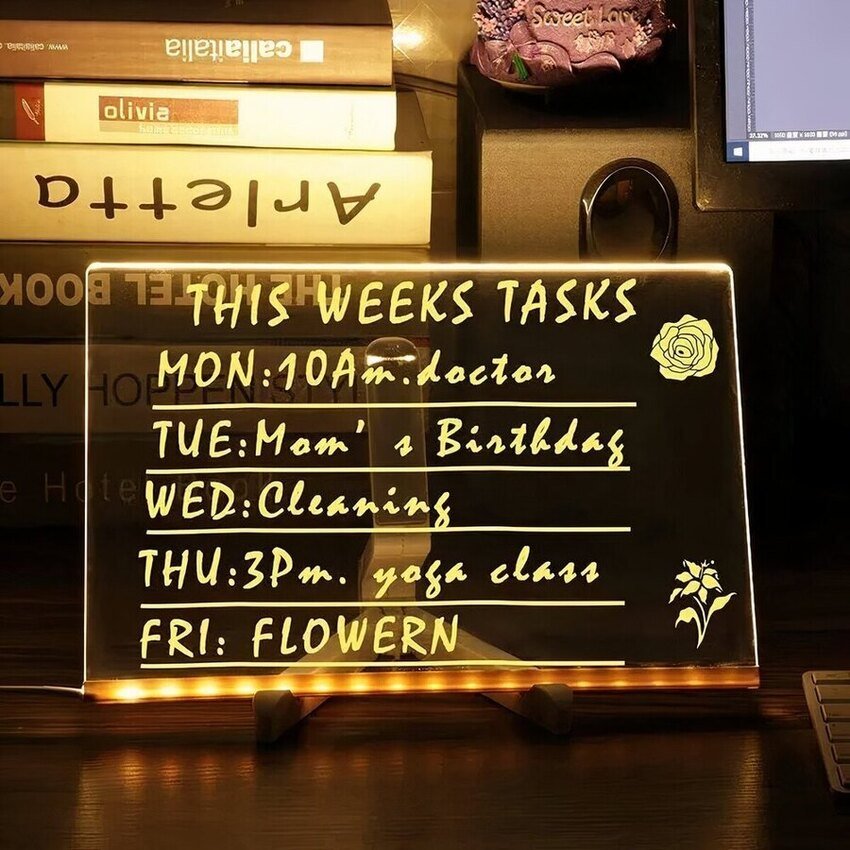 caliaitalia
www.
olivia
Arletta
Sweet Love
THE HOTEL BOOK
THIS WEEKS TASKS
MON:10Am.doctor
TUE:Mom's Birthday
WED:Cleaning
THU:3Pm. yoga class
FRI: FLOWERN